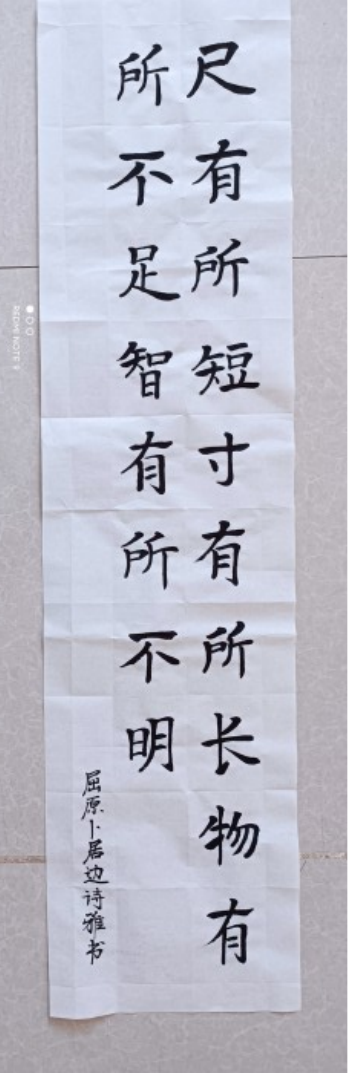 尺有所短寸有所长物有
所不足智有所不明
屈原卜居边诗雅书
REDMI NOTE 9